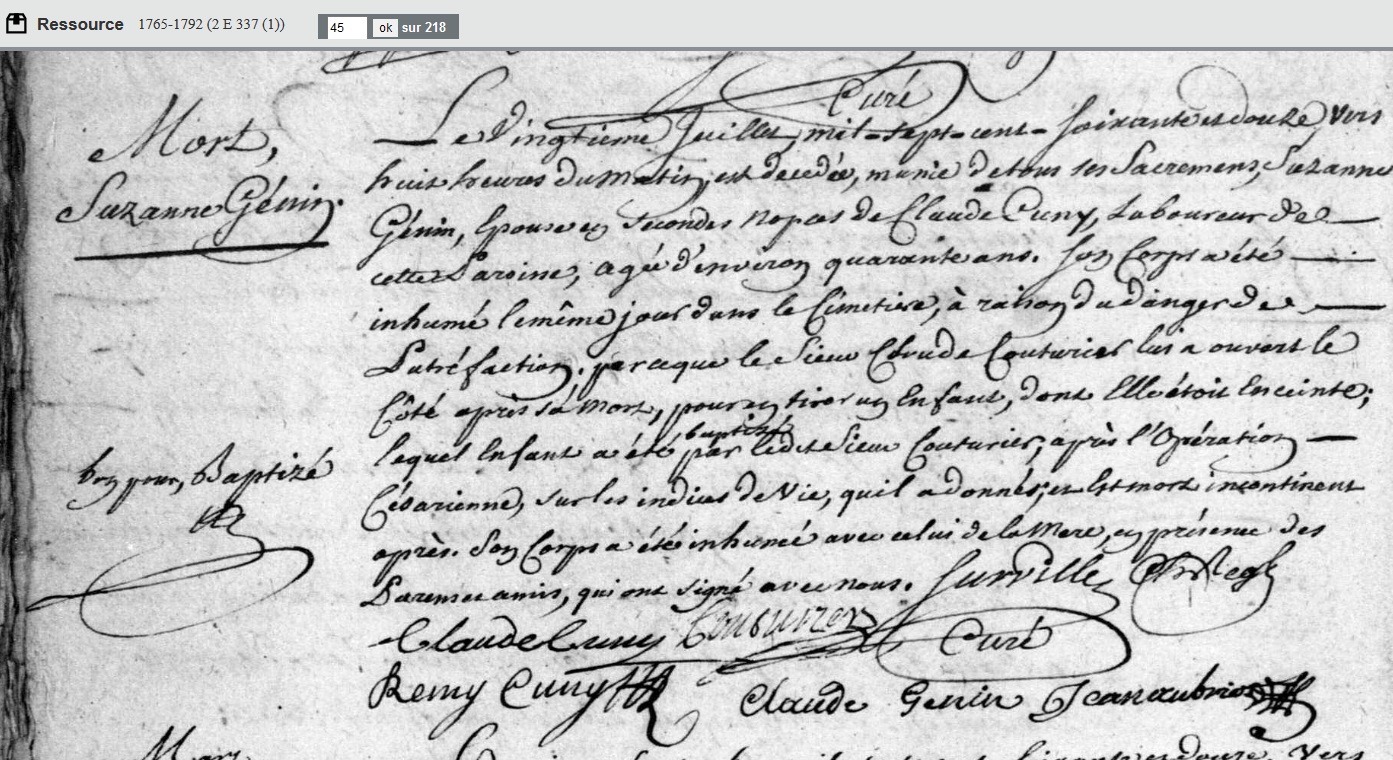 Ressource 1765-1792 (2 E 337 (1)) 45 ok sur 218
Curé
Mort,
Suzanne Génin.
Le Vingtieme Juillet, mil-sept-cent-soixante et douze, Vers
huit heures du matin, est decedée, munie de tous ses Sacremens, Suzanne
Génin, Epouse en secondes nopces de Claude Cuny, Laboureur de
cette Paroisse, agée d'environ quarante ans. Son Corps a été
inhumé le même jour dans le Cimetiere, à raison du danger de
Putréfaction, parceque le Sieur Claude Couturier lui a ouvert le
Côté après sa Mort, pour en tirer un Enfant, dont Elle étoit Enceinte;
baptisé
lequel Enfant a été par ledit Sieur Couturier, après l'Opération
Césarienne, sur les indices de Vie, qu'il a donnés, et Est mort incontinent
après. Son Corps a été inhumé avec celui de la Mere, en présence des
Parens et amis, qui ont signé avec nous. Surville
bon pour, Baptizé
Claude Cuny Couturier Curé
Remy Cuny Claude Genin Jean aubrion
Mort
Vers